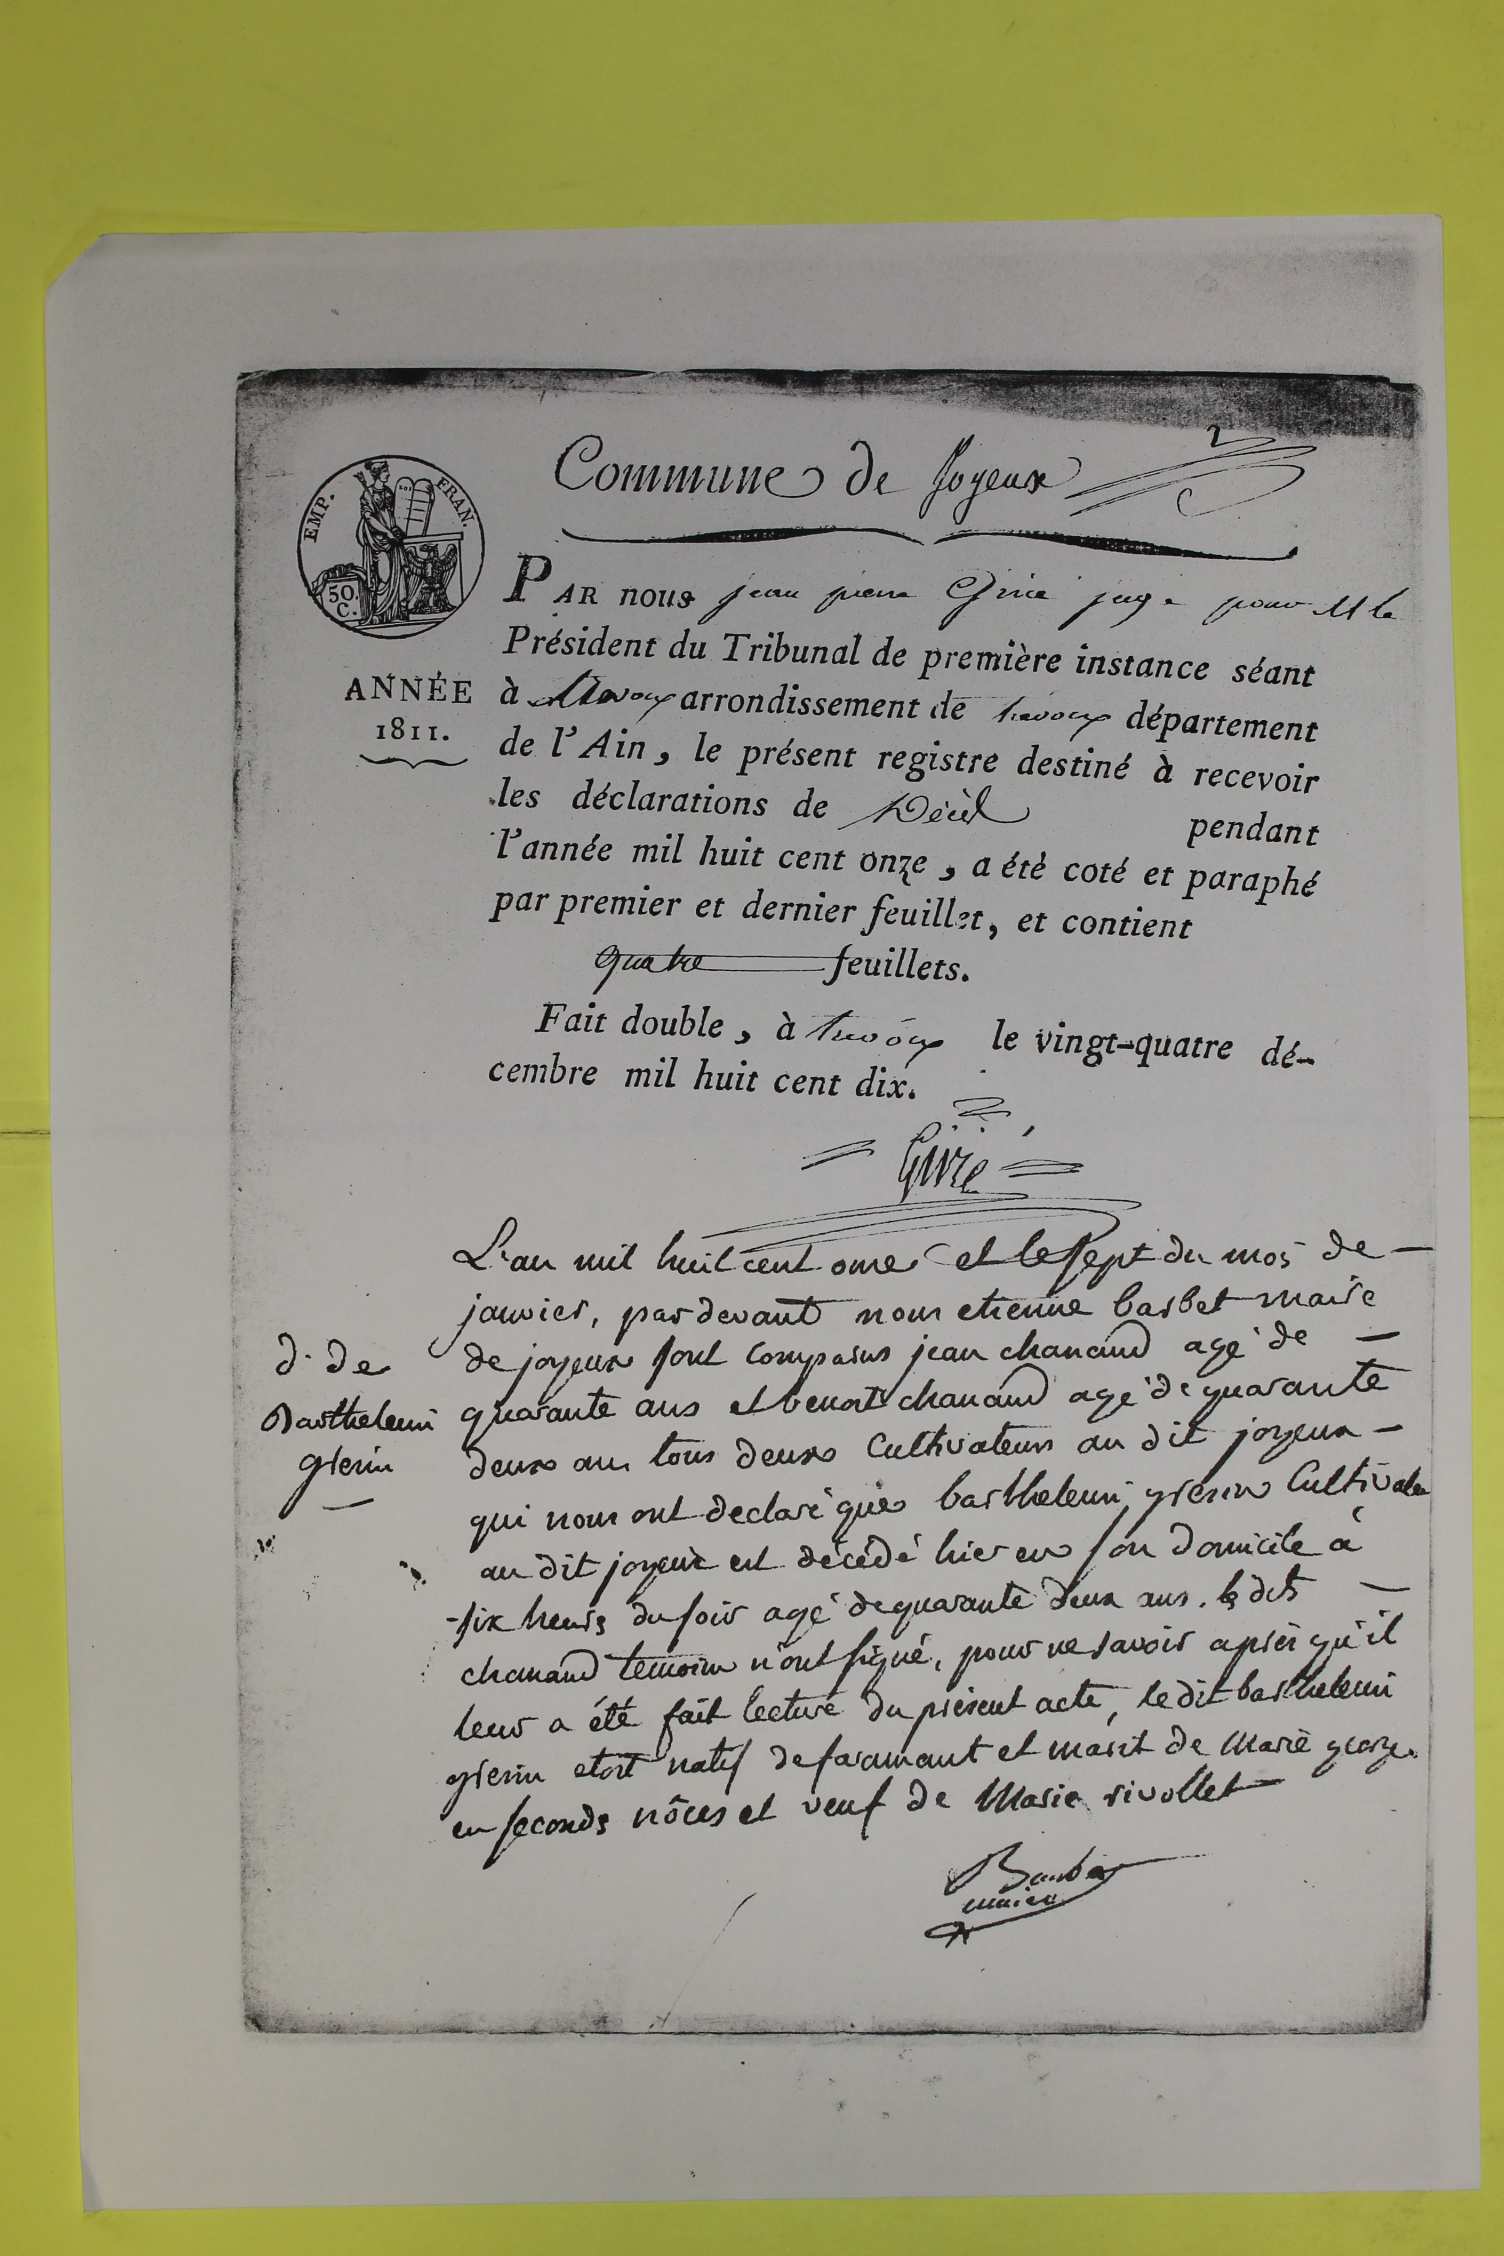 Commune de Joyeux
EMP. FRAN.
50.
C.
ANNÉE
1811.
PAR nous jean pierre Girié juge pour M le
Président du Tribunal de première instance séant
à trevoux arrondissement de trevoux département
de l'Ain, le présent registre destiné à recevoir
les déclarations de Décès pendant
l'année mil huit cent onze, a été coté et paraphé
par premier et dernier feuillet, et contient
quatre feuillets.
Fait double, à trevoux le vingt-quatre dé-
cembre mil huit cent dix.
Girié
d. de
Barthelemi
grenin
L'an mil huit cent onze et le sept du mois de
janvier, par devant nous etienne barbet maire
de joyeux sont comparus jean chanaud agé de
quarante ans et benoit chanaud agé de quarante
deux ans tous deux Cultivateurs au dit joyeux
qui nous ont declaré que barthelemi grenin Cultivateur
au dit joyeux est décédé hier en son domicile à
six heures du soir agé de quarante deux ans. les dits
chanaud temoins n'ont signé, pour ne savoir après qu'il
leur a été fait lecture du présent acte, le dit barthelemi
grenin etoit natif de faramant et marit de Marie
en seconds nôces et veuf de Marie rivollet
Barbet
maire